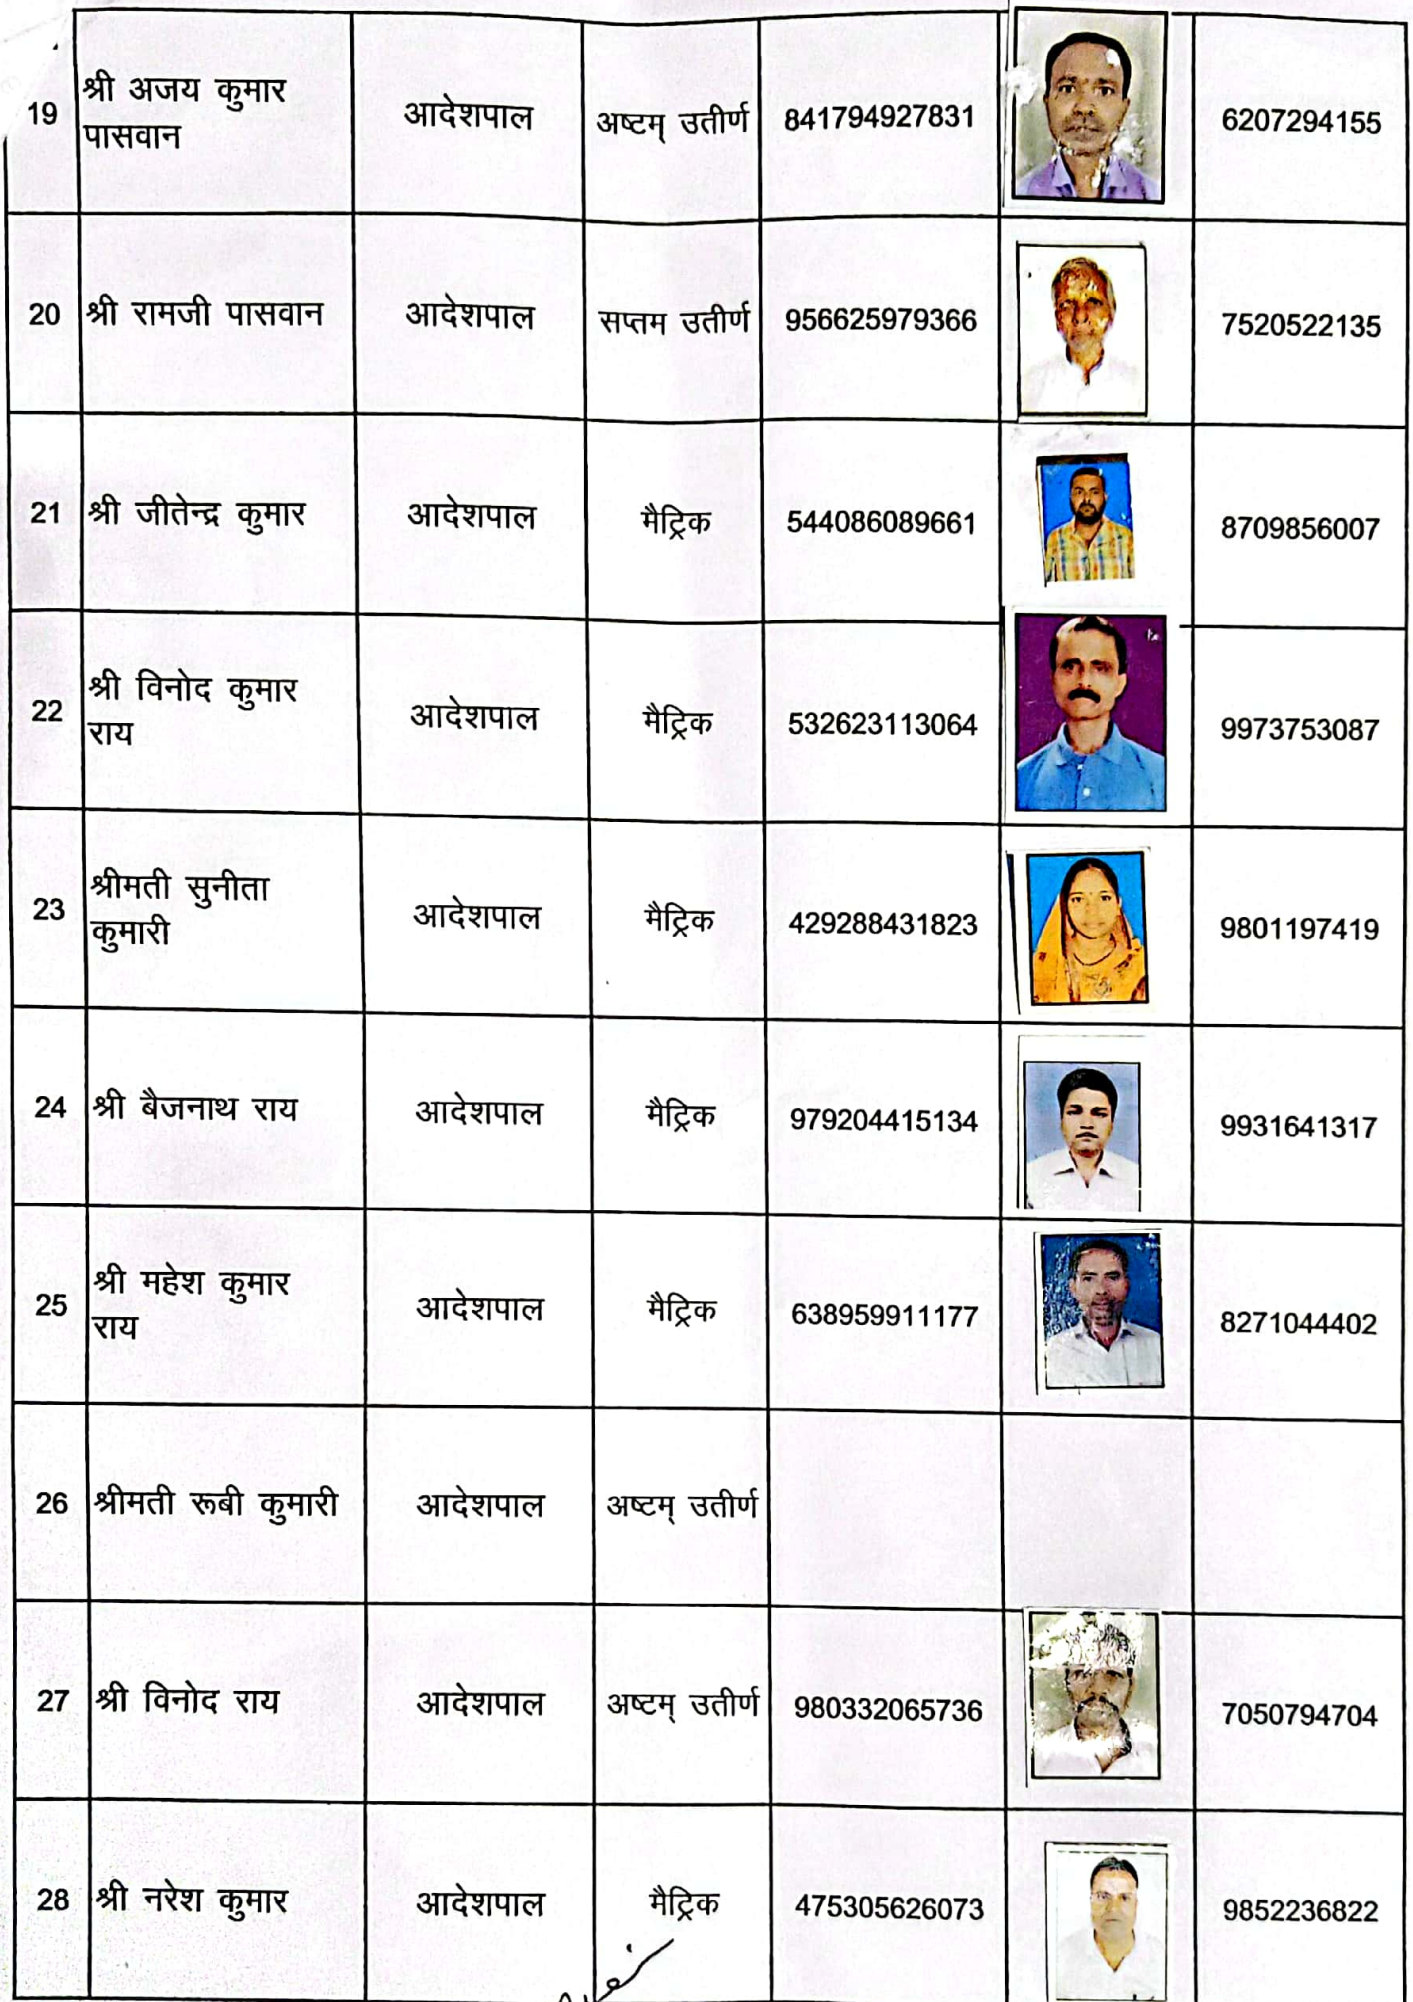 19 श्री अजय कुमार पासवान आदेशपाल अष्टम् उतीर्ण 841794927831 6207294155
20 श्री रामजी पासवान आदेशपाल सप्तम उतीर्ण 956625979366 7520522135
21 श्री जीतेन्द्र कुमार आदेशपाल मैट्रिक 544086089661 8709856007
22 श्री विनोद कुमार राय आदेशपाल मैट्रिक 532623113064 9973753087
23 श्रीमती सुनीता कुमारी आदेशपाल मैट्रिक 429288431823 9801197419
24 श्री बैजनाथ राय आदेशपाल मैट्रिक 979204415134 9931641317
25 श्री महेश कुमार राय आदेशपाल मैट्रिक 638959911177 8271044402
26 श्रीमती रूबी कुमारी आदेशपाल अष्टम् उतीर्ण
27 श्री विनोद राय आदेशपाल अष्टम् उतीर्ण 980332065736 7050794704
28 श्री नरेश कुमार आदेशपाल मैट्रिक 475305626073 9852236822